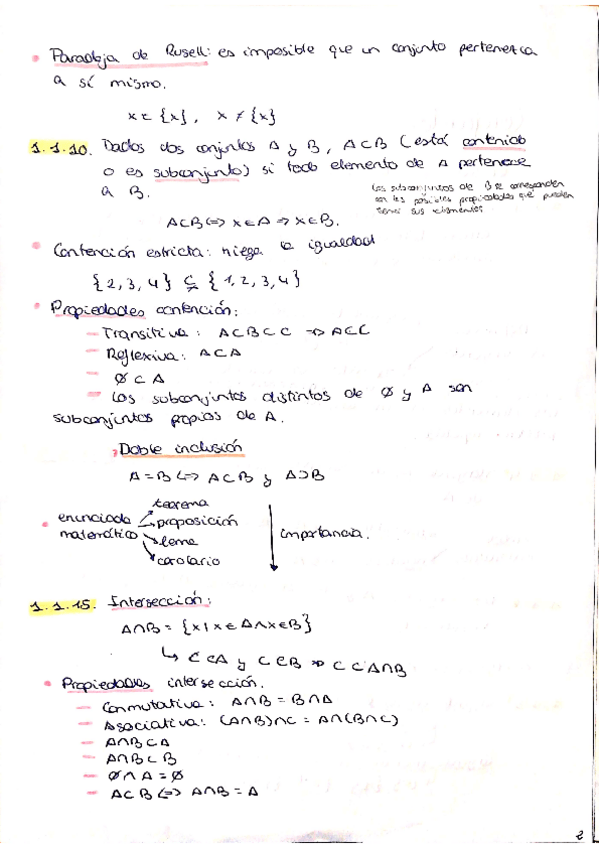 Paradoja de Rusell: es imposible que un conjunto pertenezca
a sí mismo.
x ∈ {x}, x ≠ {x}
1.1.10. Dados dos conjuntos A y B, A⊂B (está contenido
o es subconjunto) si todo elemento de A pertenece
a B.
Los subconjuntos de B se corresponden
con las posibles propiedades que pueden
tener sus elementos
A⊂B ⇔ x∈A ⇒ x∈B.
Contención estricta: niega la igualdad
{2,3,4} ⊊ {1,2,3,4}
Propiedades contención:
– Transitiva: A⊂B⊂C ⇒ A⊂C
– Reflexiva: A⊂A
– ∅⊂A
– Los subconjuntos distintos de ∅ y A son
subconjuntos propios de A.
Doble inclusión
A=B ⇔ A⊂B y A⊃B
enunciado matemático
teorema
proposición
lema
corolario
importancia.
1.1.15. Intersección:
A∩B = {x | x∈A ∧ x∈B}
↳ C⊂A y C⊂B ⇒ C⊂A∩B
Propiedades intersección.
– Conmutativa: A∩B = B∩A
– Asociativa: (A∩B)∩C = A∩(B∩C)
– A∩B⊂A
– A∩B⊂B
– ∅∩A=∅
– A⊂B ⇔ A∩B = A
2